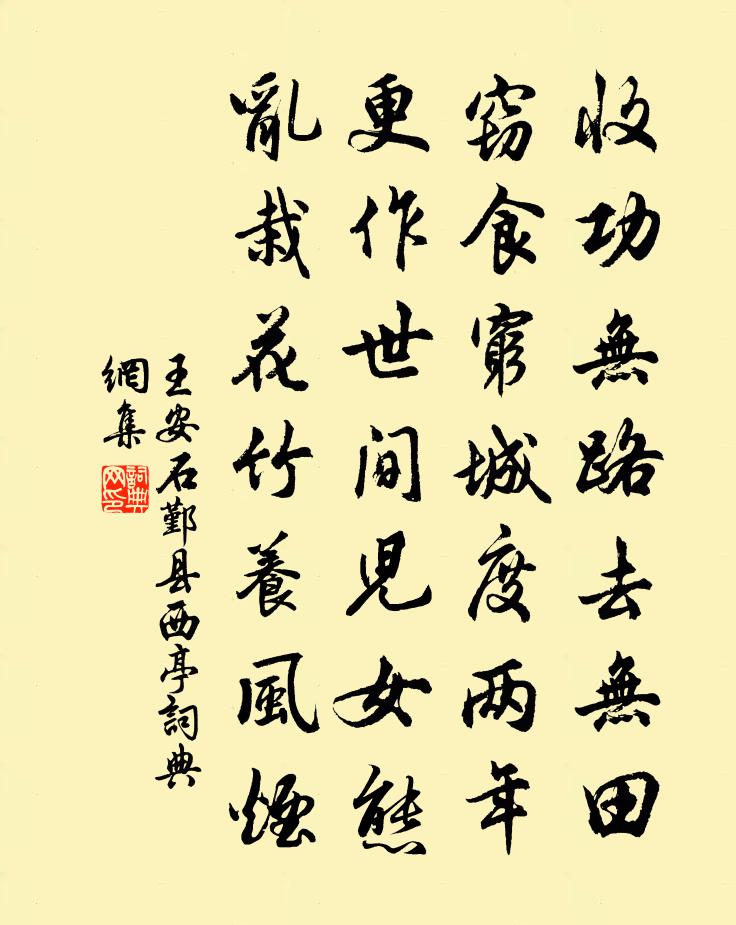 收功無路去無田
窃食窮城度兩年
更作世間兒女態
亂栽花竹養風煙
王安石鄞县西亭詞典
網集
詞典
网印